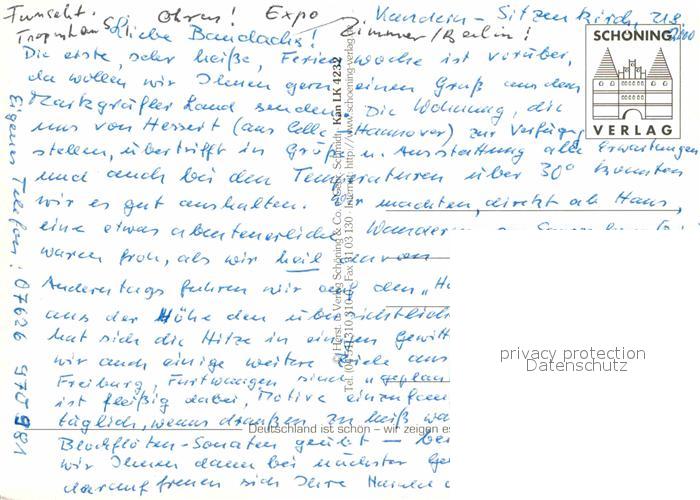 Ohrus! Expo
Zimmer/Berlin!
Kandern - Sitzenkirch,
Liebe Bandachs!
Die erste, sehr heiße, Ferienwoche ist vorüber,
da wollen wir Ihnen gern einen Gruß aus dem
Markgräfler Land senden. Die Wohnung, die
uns von Hesserts (aus Celle Hannover) zur Verfügung
stellen, übertrifft in Größe u. Ausstattung alle Erwartungen
und auch bei den Temperaturen über 30° konnten
wir es gut aushalten. Wir machten, direkt ab Haus,
eine etwas abenteuerliche Wander
waren froh, als wir heil davon
Anderntags fuhren wir auf den „
aus der Höhe den übersichtlich
hat sich die Hitze in einem Gewitt
wir auch einige weitere Ziele aus
Freiburg, Furtwangen sind „geplan
ist fleißig dabei, Motive einzufan
täglich, wenns draußen zu heiß wa
Blockflöten-Sonaten geübt — bei
wir Ihnen dann bei nächster Ge
darauf freuen sich Ihre
Eigenes Telefon: 07626 970981
SCHÖNING
VERLAG
Kan LK 4232
© Herst. u. Verlag Schöning & Co.
Deutschland ist schön – wir zeigen es
privacy protection
Datenschutz